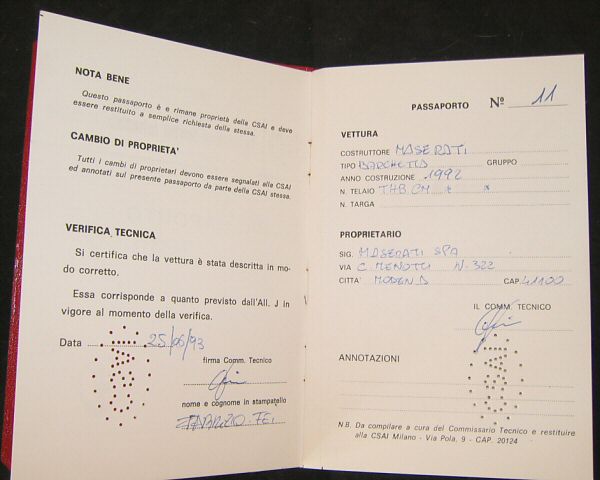 NOTA BENE
Questo passaporto è e rimane proprietà della CSAI e deve
essere restituito a semplice richiesta della stessa.
CAMBIO DI PROPRIETA'
Tutti i cambi di proprietari devono essere segnalati alla CSAI
ed annotati sul presente passaporto da parte della CSAI stessa.
VERIFICA TECNICA
Si certifica che la vettura è stata descritta in mo-
do corretto.
Essa corrisponde a quanto previsto dall'All. J in
vigore al momento della verifica.
Data 25/06/93
firma Comm. Tecnico
nome e cognome in stampatello
FABRIZIO FEI
PASSAPORTO Nº 11
VETTURA
COSTRUTTORE MASERATI
TIPO BARCHETTA GRUPPO
ANNO COSTRUZIONE 1992
N. TELAIO THB.CM
N. TARGA
PROPRIETARIO
SIG. MASERATI SPA
VIA C. MENOTTI N. 322
CITTA' MODENA CAP. 41100
IL COMM. TECNICO
ANNOTAZIONI
N.B. Da compilare a cura del Commissario Tecnico e restituire
alla CSAI Milano - Via Pola, 9 - CAP. 20124